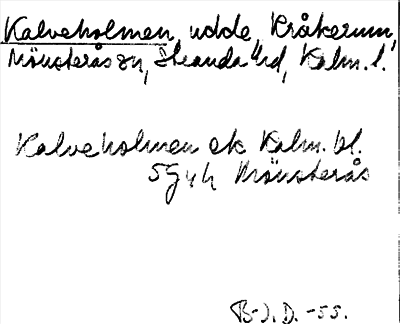 Kalveholmen, udde, Kråkerum,
Mönsterås sn, Stranda hd, Kalm. l.
Kalveholmen ek Kalm. bl.
5G4h Mönsterås
B-J. D. -55.